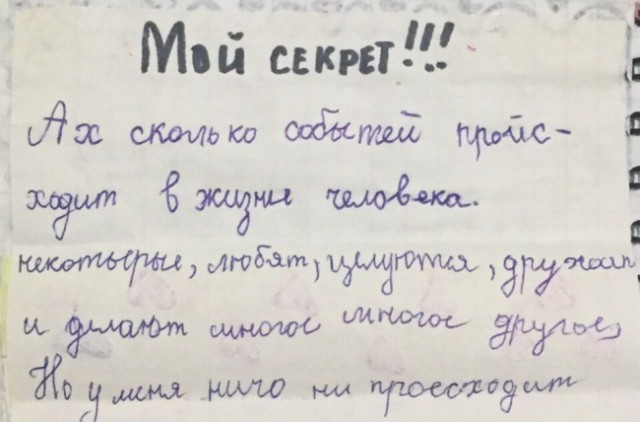 Мой секрет!!!
Ах сколько событей пройс-
ходит в жизне человека.
некотырые, любят, целуются, дружат
и делают многое многое другое,
Но у меня ничо ни проесходит